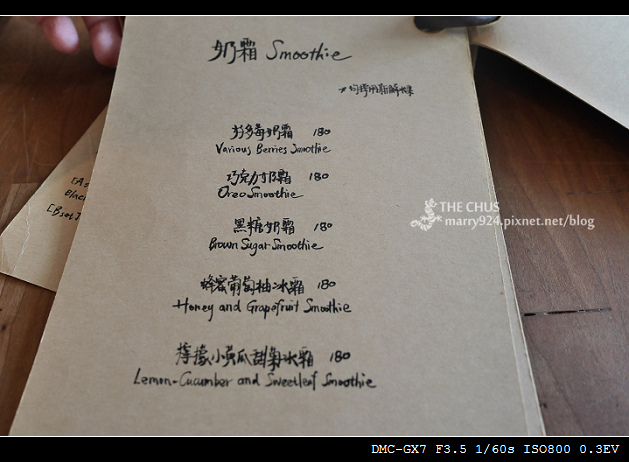 奶霜 Smoothie
莓奶霜 180
Various Berries Smoothie
巧克力奶霜 180
Oreo Smoothie
黑糖奶霜 180
Brown Sugar Smoothie
蜂蜜葡萄柚冰霜 180
Honey and Grapefruit Smoothie
檸檬小黃瓜甜菊冰霜 180
Lemon-Cucumber and Sweetleaf Smoothie
THE CHUS
marry924.pixnet.net/blog
DMC-GX7 F3.5 1/60s ISO800 0.3EV